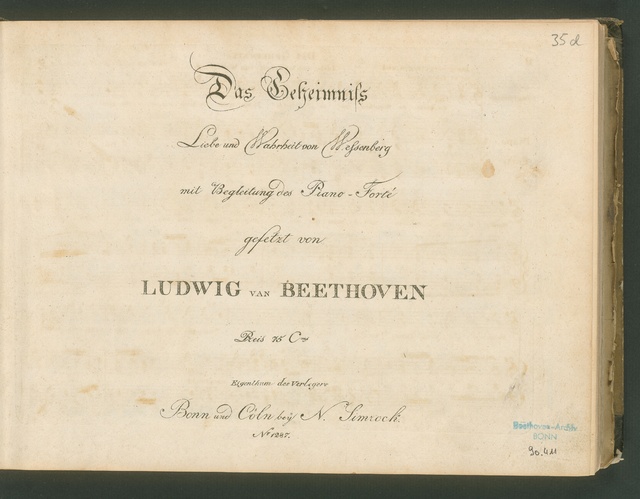 35d
Das Geheimniſs
Liebe und Wahrheit von Weſsenberg
mit Begleitung des Piano-Forté
geſetzt von
LUDWIG VAN BEETHOVEN
Preis 75 Cs
Eigenthum des Verlegers
Bonn und Cöln beÿ N. Simrock.
No 1247.
Beethoven-Archiv
BONN